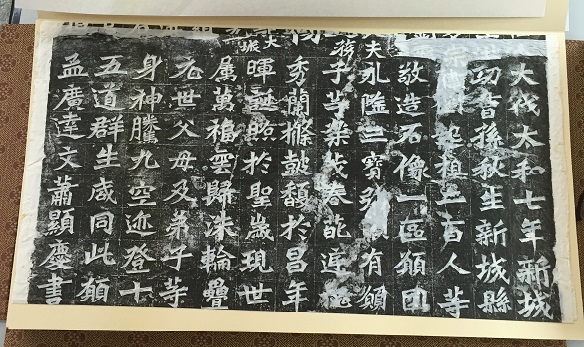 大代太和七年新城
功曹孫秋生新城縣
起祖二百人等
敬造石像一區願国
永隆三寶有願
子等榮茂春葩
秀蘭條鼓馥於昌年
暉誕照於聖歲現世
属萬福雲歸洙輪疊
元世父母及弟子等
身神騰九空迹登十
五道群生咸同此願
孟廣達文蕭顯慶書